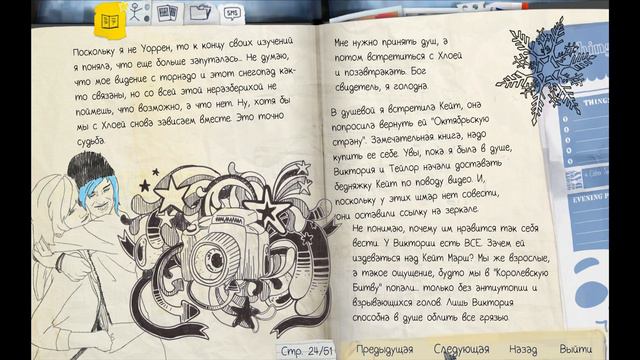 SMS
Поскольку я не Уоррен, то к концу своих изучений
я поняла, что еще больше запуталась... Не думаю,
что мое видение с торнадо и этот снегопад как-
то связаны, но со всей этой неразберихой не
поймешь, что возможно, а что нет. Ну, хотя бы
мы с Хлоей снова зависаем вместе. Это точно
судьба.
Мне нужно принять душ, а
потом встретиться с Хлоей
и позавтракать. Бог
свидетель, я голодна.
В душевой я встретила Кейт, она
попросила вернуть ей "Октябрьскую
страну". Замечательная книга, надо
купить ее себе. Увы, пока я была в душе,
Виктория и Тейлор начали доставать
бедняжку Кейт по поводу видео. И,
поскольку у этих шмар нет совести,
они оставили ссылку на зеркале.
Не понимаю, почему им нравится так себя
вести. У Виктории есть ВСЕ. Зачем ей
издеваться над Кейт Марш? Мы же взрослые,
а такое ощущение, будто мы в "Королевскую
Битву" попали... только без антиутопии и
взрывающихся голов. Лишь Виктория
способна в душе облить все грязью.
THING
EVENING P
Стр. 24/51
Предыдущая Следующая Назад Выйти